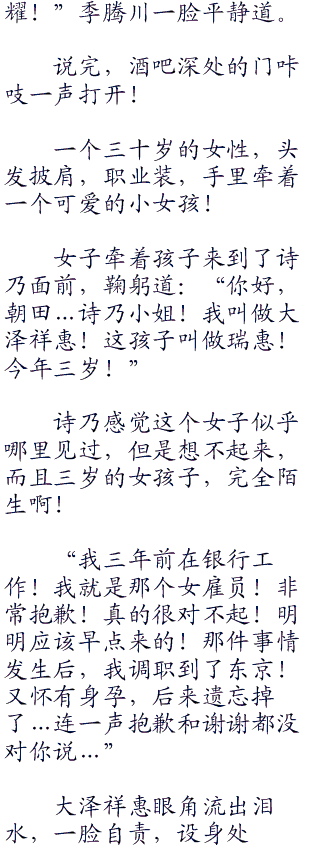 耀！”季腾川一脸平静道。
说完，酒吧深处的门咔
吱一声打开！
一个三十岁的女性，头
发披肩，职业装，手里牵着
一个可爱的小女孩！
女子牵着孩子来到了诗
乃面前，鞠躬道：“你好，
朝田…诗乃小姐！我叫做大
泽祥惠！这孩子叫做瑞惠！
今年三岁！”
诗乃感觉这个女子似乎
哪里见过，但是想不起来，
而且三岁的女孩子，完全陌
生啊！
“我三年前在银行工
作！我就是那个女雇员！非
常抱歉！真的很对不起！明
明应该早点来的！那件事情
发生后，我调职到了东京！
又怀有身孕，后来遗忘掉
了…连一声抱歉和谢谢都没
对你说…”
大泽祥惠眼角流出泪
水，一脸自责，设身处